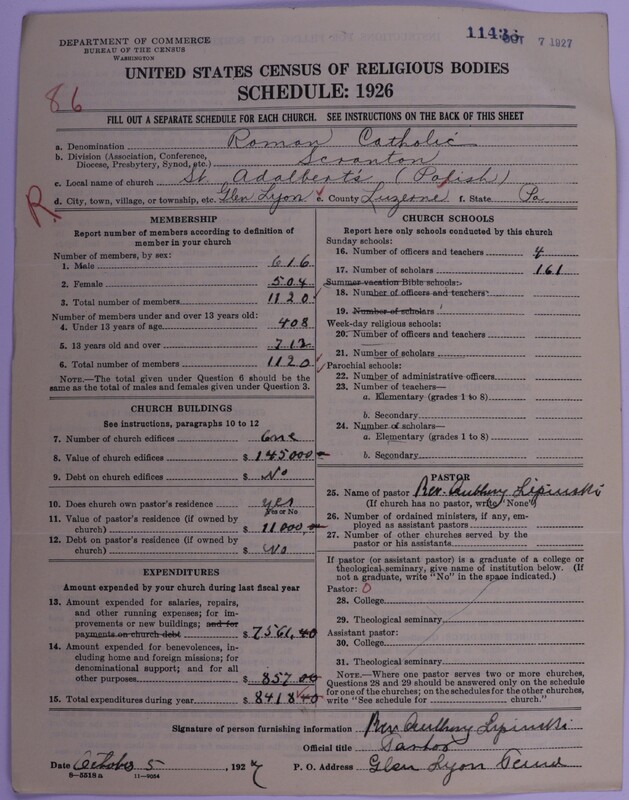 DEPARTMENT OF COMMERCE
BUREAU OF THE CENSUS
WASHINGTON
11434 OCT 7 1927
UNITED STATES CENSUS OF RELIGIOUS BODIES
SCHEDULE: 1926
86
FILL OUT A SEPARATE SCHEDULE FOR EACH CHURCH. SEE INSTRUCTIONS ON THE BACK OF THIS SHEET
a. Denomination Roman Catholic
b. Division (Association, Conference, Diocese, Presbytery, Synod, etc.) Scranton
c. Local name of church St. Adalbert's (Polish)
R.
d. City, town, village, or township, etc. Glen Lyon e. County Luzerne f. State Pa
MEMBERSHIP
Report number of members according to definition of
member in your church
Number of members, by sex:
1. Male 616
2. Female 504
3. Total number of members 1120
Number of members under and over 13 years old:
4. Under 13 years of age 408
5. 13 years old and over 712
6. Total number of members 1120
NOTE.—The total given under Question 6 should be
the same as the total of males and females given under Question 3.
CHURCH BUILDINGS
See instructions, paragraphs 10 to 12
7. Number of church edifices One
8. Value of church edifices $ 145000
9. Debt on church edifices $ No
10. Does church own pastor's residence yes
Yes or No
11. Value of pastor's residence (if owned by
church) $ 11000
12. Debt on pastor's residence (if owned by
church) $ No
EXPENDITURES
Amount expended by your church during last fiscal year
13. Amount expended for salaries, repairs,
and other running expenses; for im-
provements or new buildings; and for
payments on church debt $ 7561,40
14. Amount expended for benevolences, in-
cluding home and foreign missions; for
denominational support; and for all
other purposes $ 857 00
15. Total expenditures during year $ 8418 40
CHURCH SCHOOLS
Report here only schools conducted by this church
Sunday schools:
16. Number of officers and teachers 4
17. Number of scholars 161
Summer vacation Bible schools:
18. Number of officers and teachers
19. Number of scholars
Week-day religious schools:
20. Number of officers and teachers
21. Number of scholars
Parochial schools:
22. Number of administrative officers
23. Number of teachers—
a. Elementary (grades 1 to 8)
b. Secondary
24. Number of scholars—
a. Elementary (grades 1 to 8)
b. Secondary
PASTOR
25. Name of pastor Rev. Anthony Lipinski
(If church has no pastor, write "None")
26. Number of ordained ministers, if any, em-
ployed as assistant pastors
27. Number of other churches served by the
pastor or his assistants
If pastor (or assistant pastor) is a graduate of a college or
theological seminary, give name of institution below. (If
not a graduate, write "No" in the space indicated.)
Pastor: 0
28. College
29. Theological seminary
Assistant pastor:
30. College
31. Theological seminary
NOTE.—Where one pastor serves two or more churches,
Questions 28 and 29 should be answered only on the schedule
for one of the churches; on the schedules for the other churches,
write "See schedule for church."
Signature of person furnishing information Rev Anthony Lipinski
Official title Pastor
Date October 5, 1927 P. O. Address Glen Lyon Penna
8—5518 a 11—9054